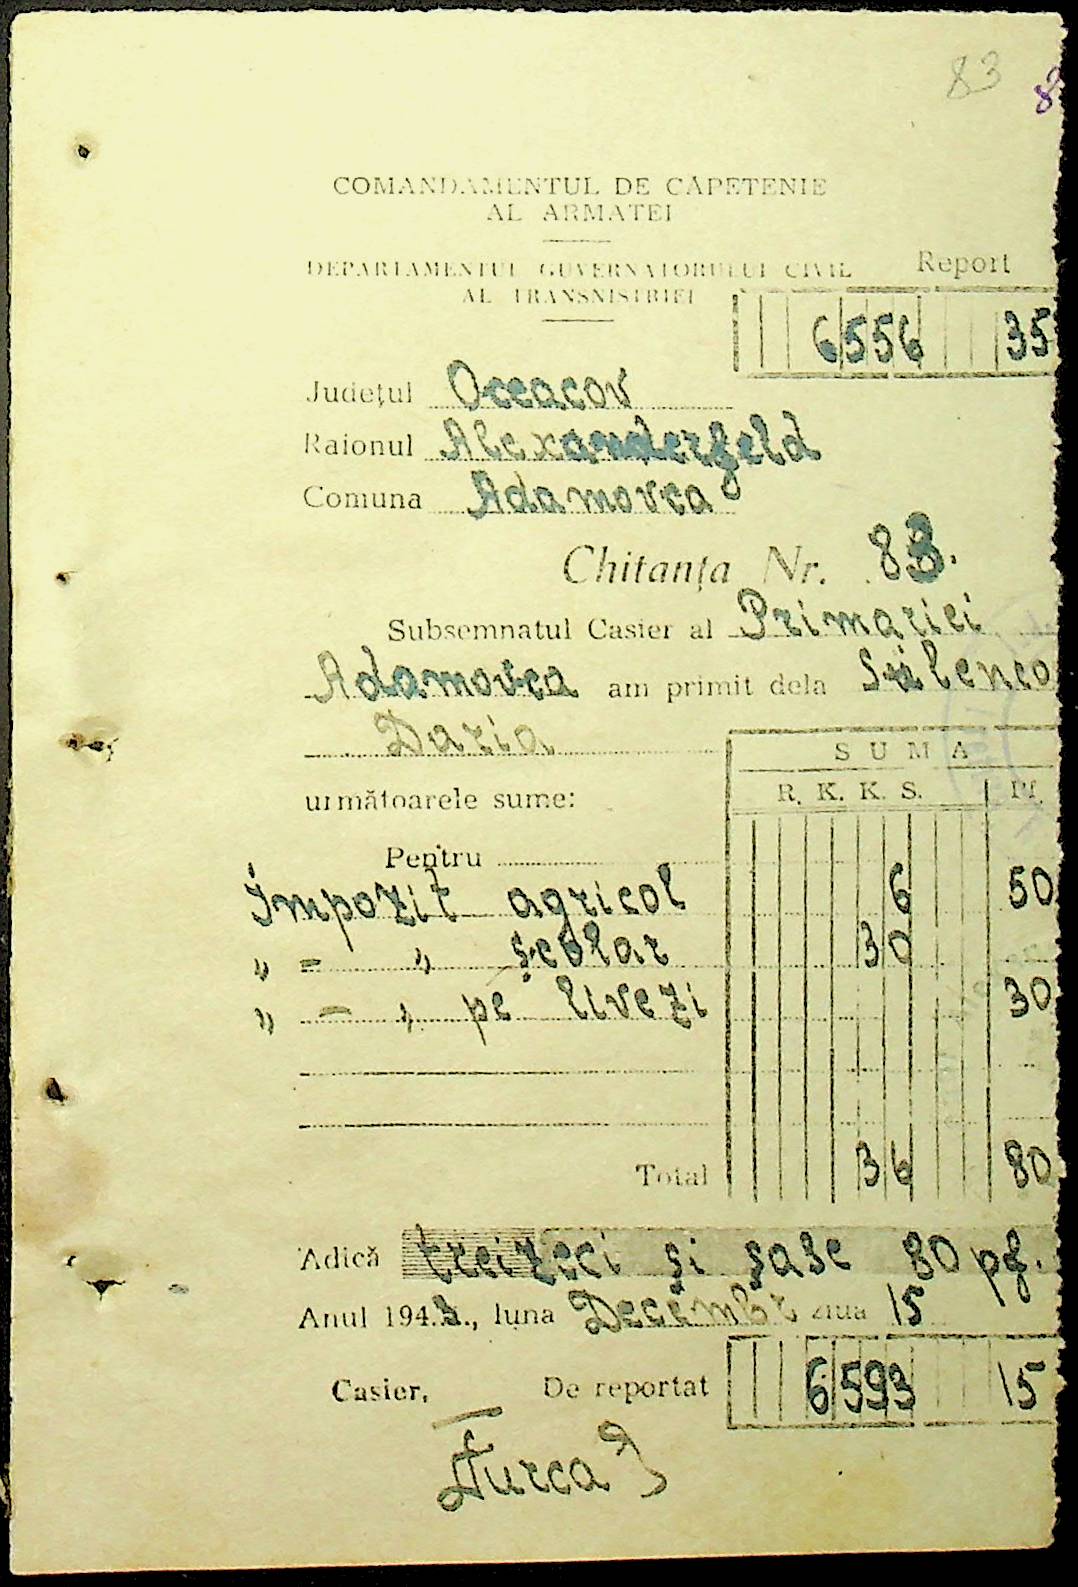 83
COMANDAMENTUL DE CĂPETENIE
AL ARMATEI
DEPARTAMENTUL GUVERNATORULUI CIVIL
AL TRANSNISTRIEI
Report
6556 35
Județul Oceacov
Raionul Alexanderfeld
Comuna Adamovca
Chitanța Nr. 83.
Subsemnatul Casier al Primariei
Adamovca am primit dela
Daria
SUMA
următoarele sume:
R. K. K. S. Pf.
Pentru
Impozit agricol 6 50
„ = „ școlar 30
„ = „ pe livezi 30
Total 36 80
Adică treizeci și șase 80 pf.
Anul 1943., luna Decembr ziua 15
Casier, De reportat 6593 15